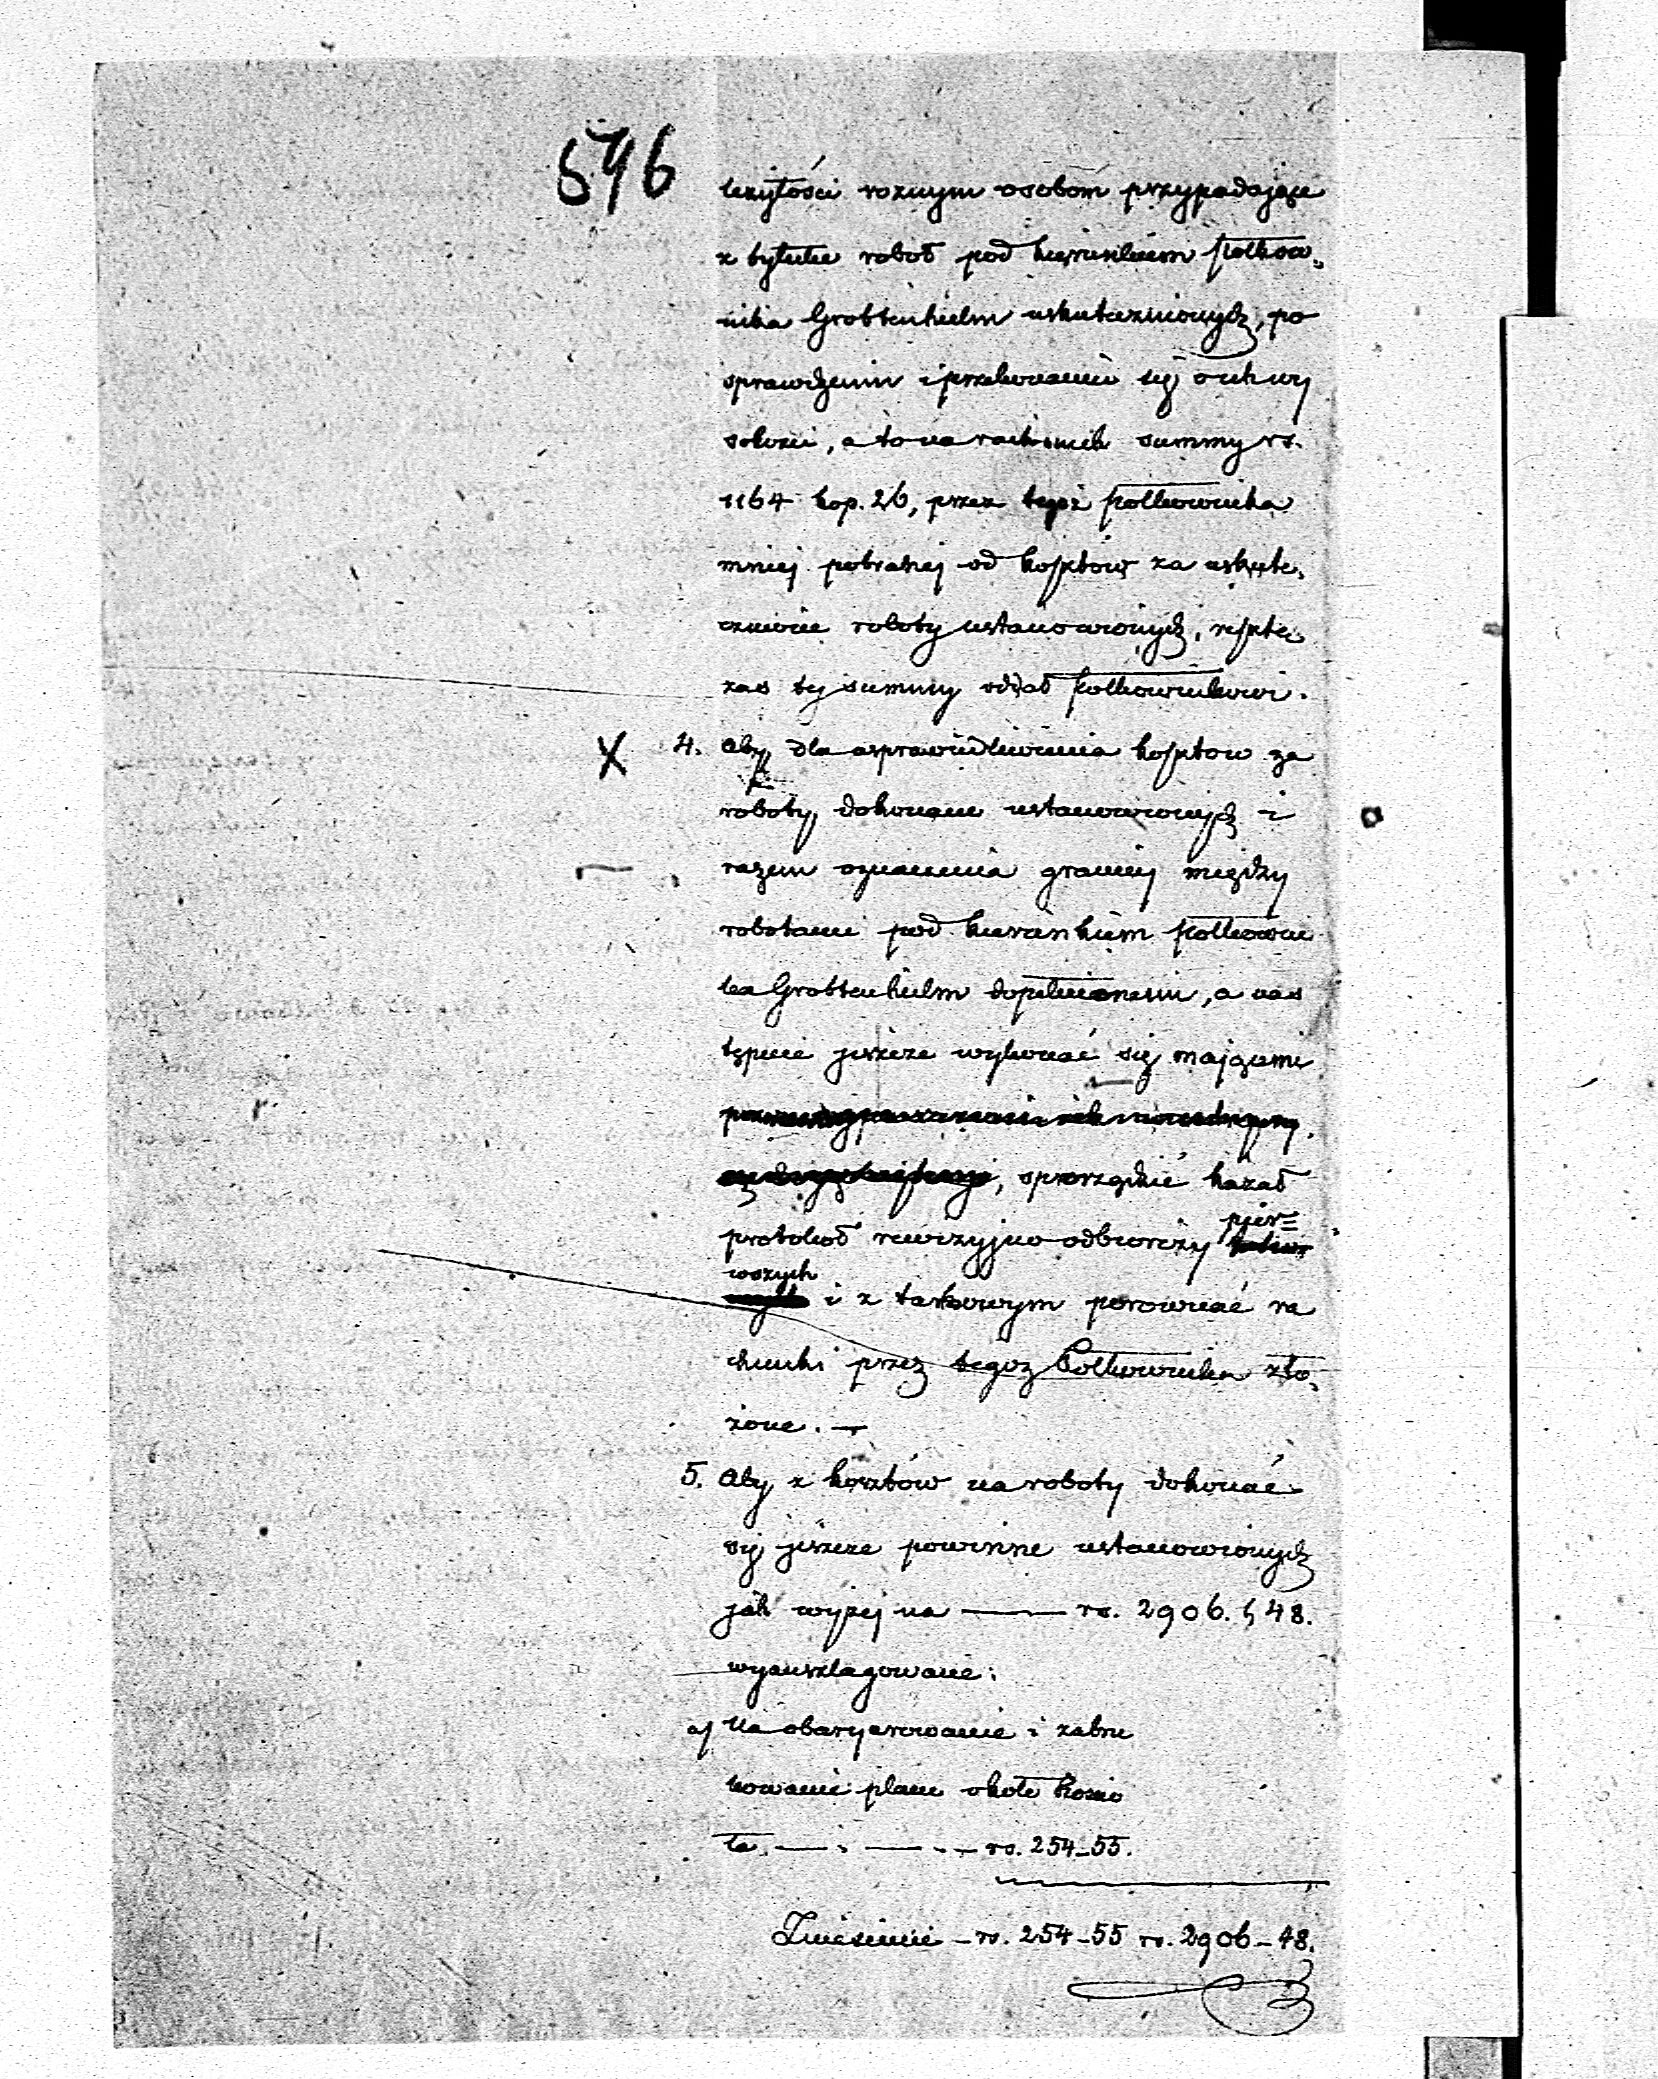 546
leżytości roznym osobom przypadające
z tytułu robot pod kierunkiem Połkow„
nika Grobtenhielm uskutecznionych, po
sprawdzeniu i przekonaniu się o ich wy
sokości, a to na rachunek summy rs.
1164 kop. 26, przez tegoż Połkownika
mniej pobranej od kosztow za uskute„
cznione roboty ustanowionych, resztę
zaś tej summy oddał Połkownikowi.
X 4. Aby dla usprawiedliwienia kosztow za
roboty dokonane ustanowionych i
razem oznaczenia granicy między
robotami pod kierunkiem Połkowni
ka Grobtenhielm dopełnionemi, a nas
tępnie jeszcze wykonać się mającemi
, sporządzić kazał
protokoł rewizyjno odbiorczy pier=
wszych i z takowym porownać ra
chunki przez tegoz Połkownika zło„
żone. —
5. Aby z kosztów na roboty dokonać
się jeszcze powinne ustanowionych
jak wyżej na —— rs. 2906. k 48.
wyanszlagowane:
a/ Na obaryerowanie i zabru
kowanie placu okoto Koscio
ła. — . — . — rs. 254-55.
Zniesienie - rs. 254-55 rs. 2906-48.